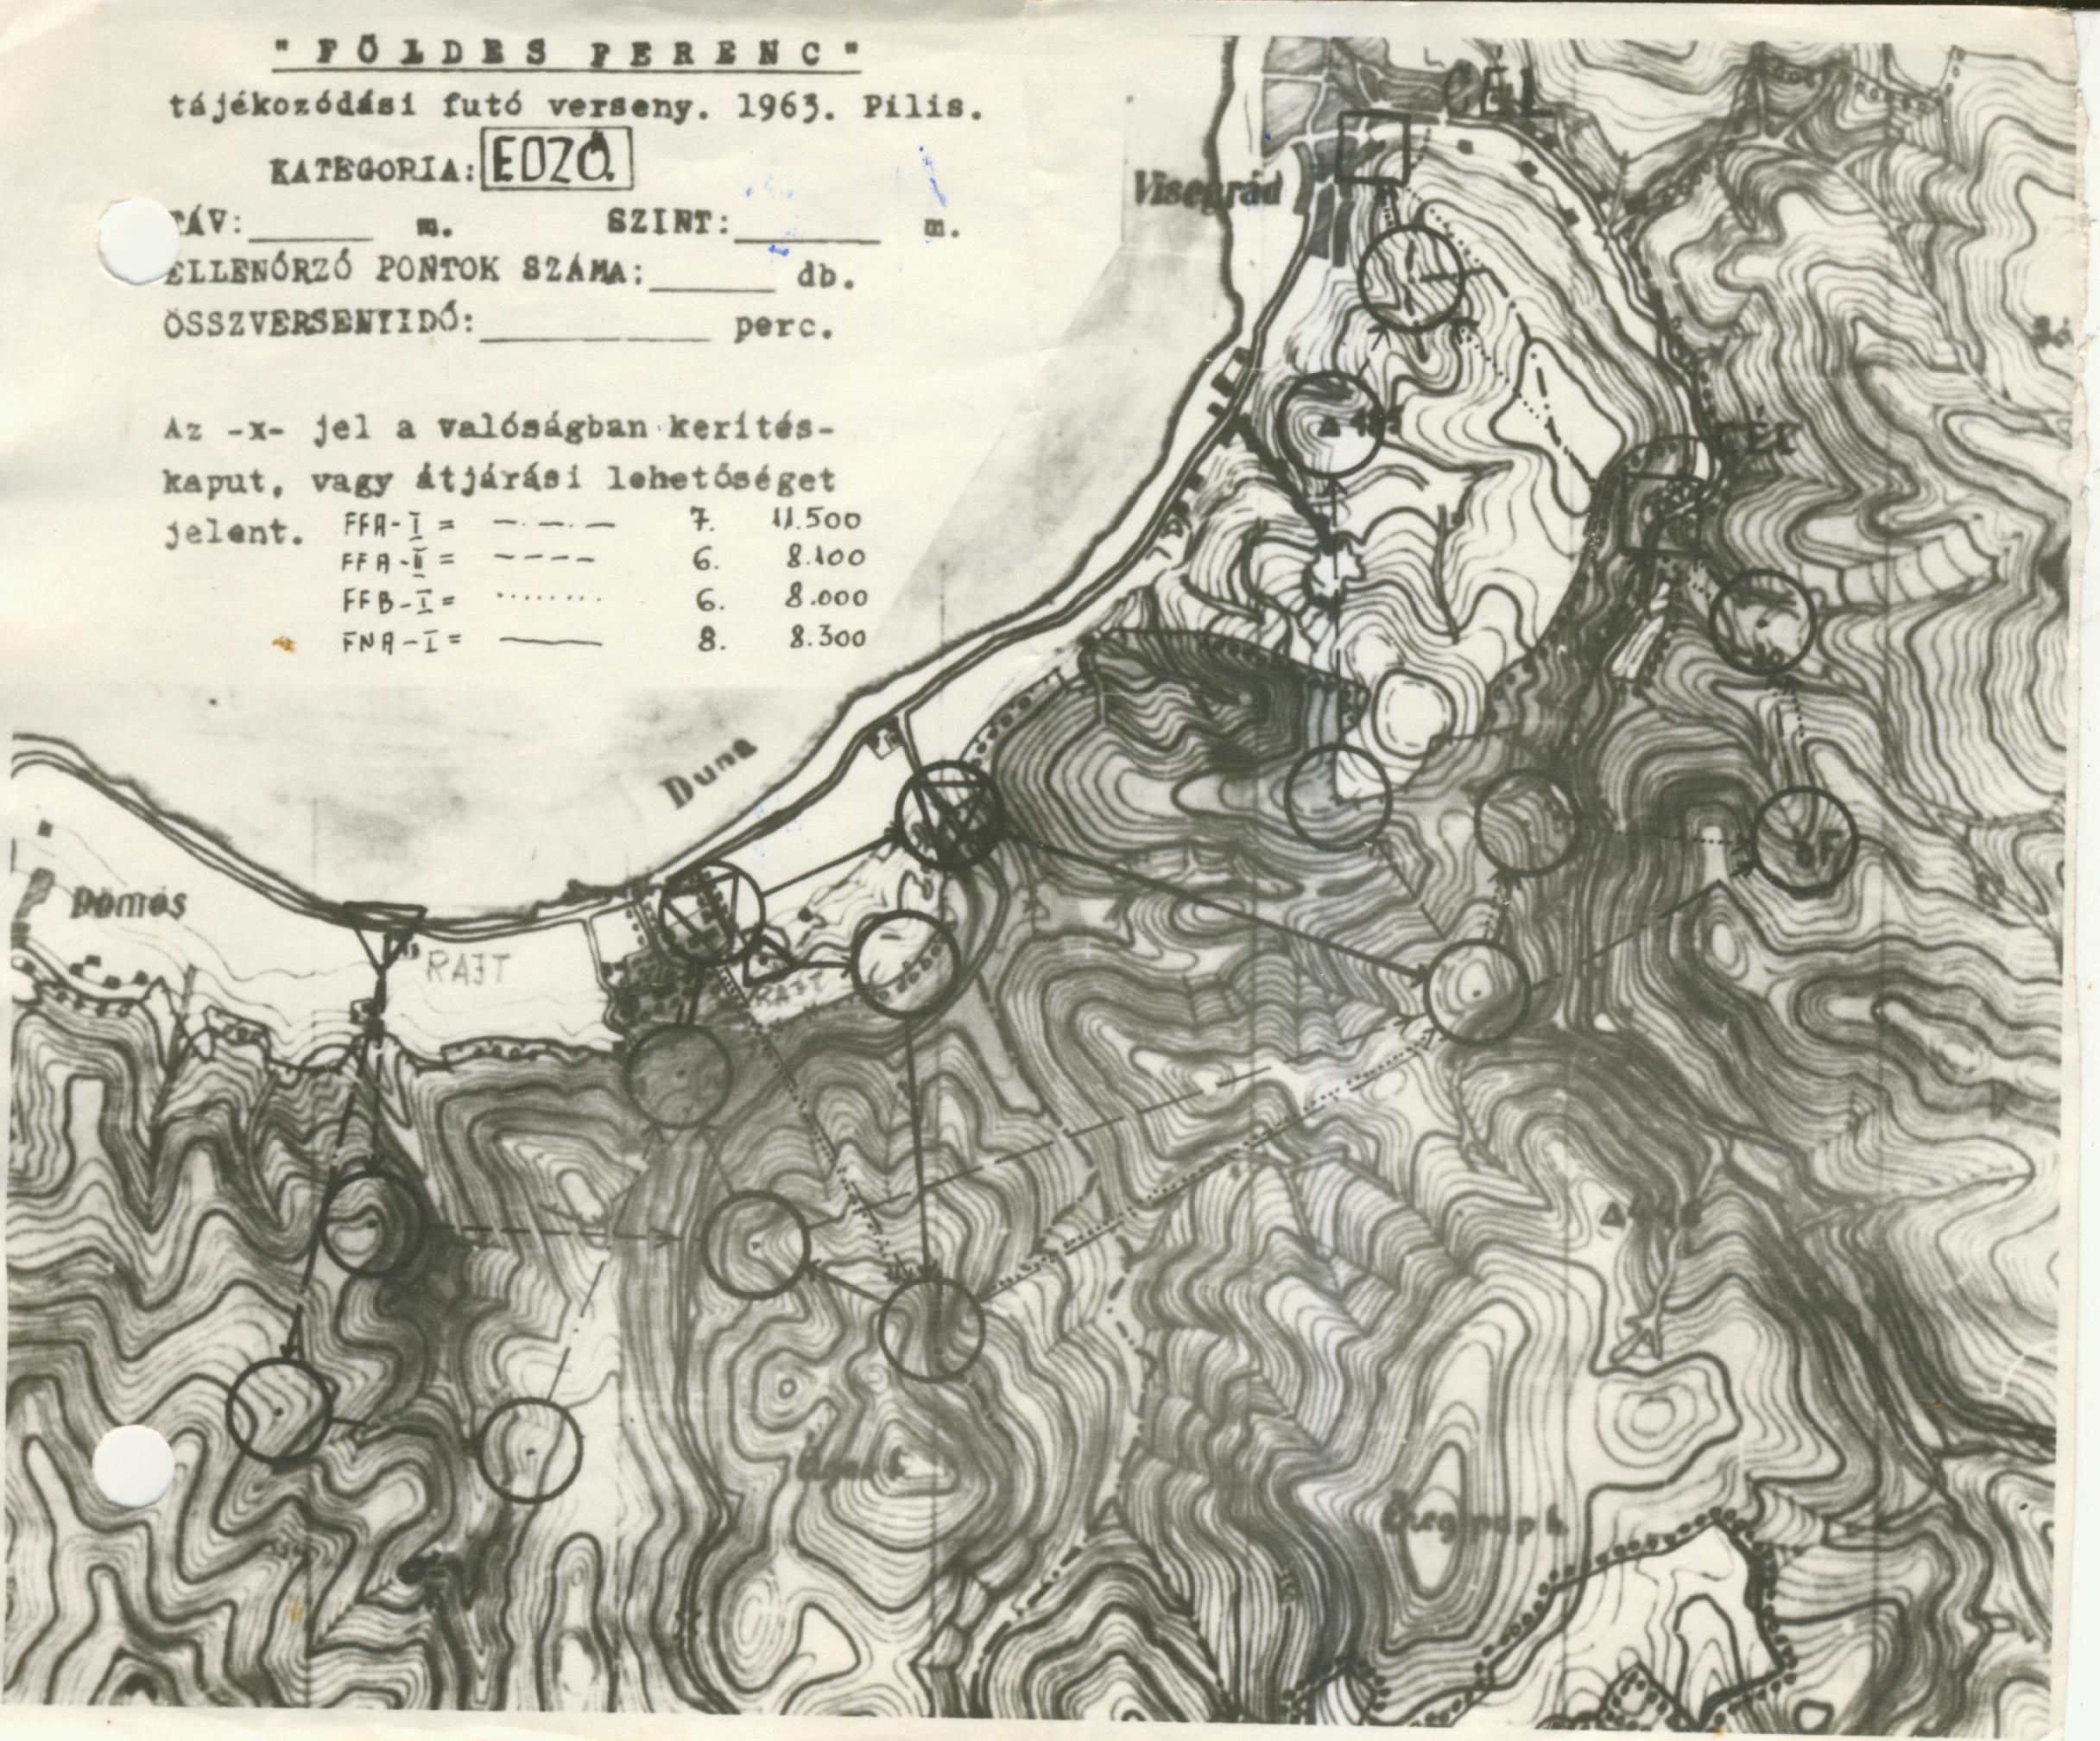 "FÖLDES FERENC"
tájékozódási futó verseny. 1963. Pilis.
KATEGORIA: EDZŐ.
TÁV:______ m. SZINT:_______ m.
ELLENŐRZŐ PONTOK SZÁMA:______ db.
ÖSSZVERSENYIDŐ:___________ perc.
Az -x- jel a valóságban kerítés-
kaput, vagy átjárási lehetőséget
jelent.
FFA-I = —.—.— 7. 11.500
FFA-II = ---- 6. 8.100
FFB-I = ........ 6. 8.000
FNA-I = —— 8. 8.300
CÉL
Visegrád
CÉL
Duna
Dömös
RAJT
RAJT